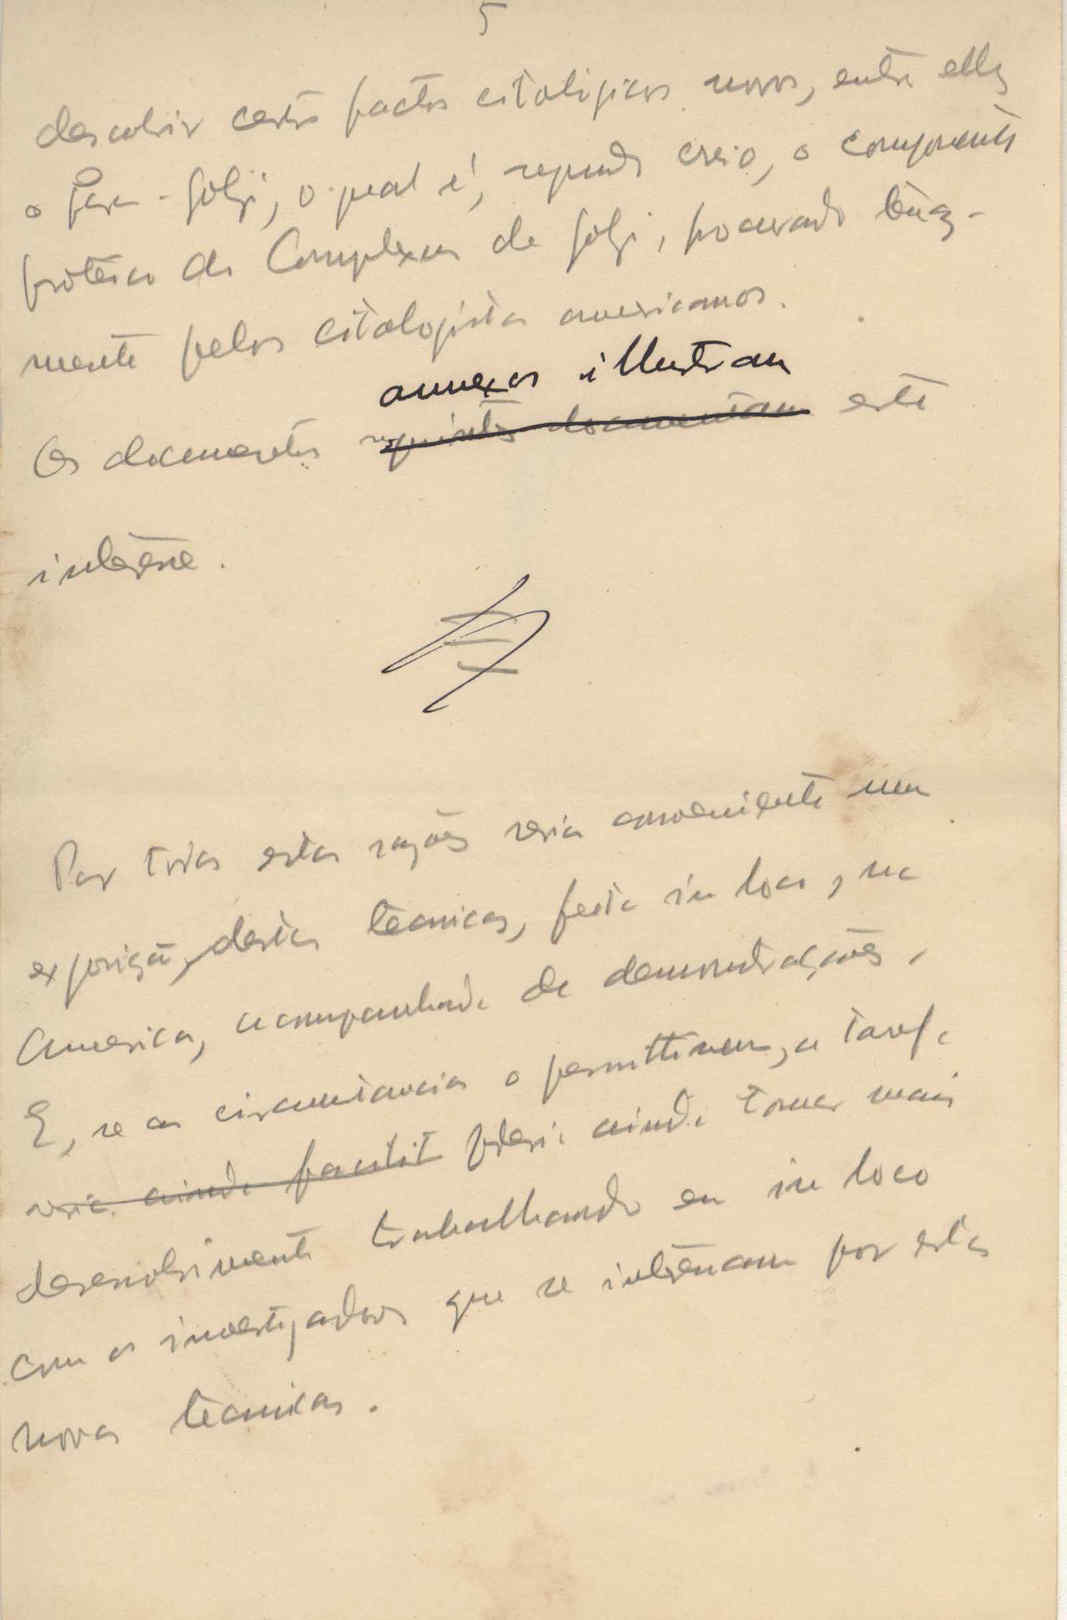 5
descobrir certos factos citologicos novos, entre elles
o para-Golgi, o qual é, segundo creio, o componente
proteico do Complexus de Golgi, procurado tenaz-
mente pelos citologistas americanos.
annexos illustram
Os documentos seguintes documentam este
interesse.
Por todas estas razões seria conveniente uma
exposição, destas tecnicas, feita in loco, na
America, acompanhada de demonstrações.
E, se as circumstancias o permittirem, a tarefa
seria ainda facilit poderia ainda tomar mais
desenvolvimento trabalhando eu in loco
com os investigadores que se interessam por estas
novas tecnicas.